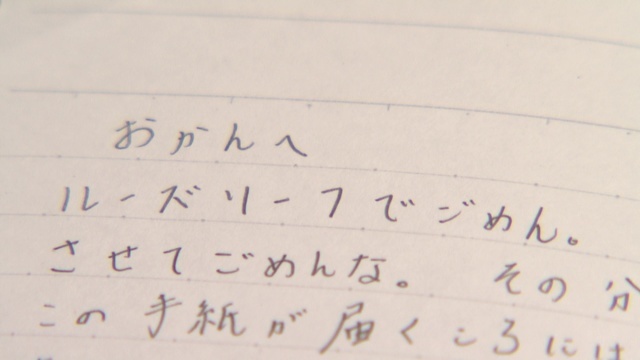 おかんへ
ルーズリーフでごめん。
させてごめんな。 その分
この手紙が届くころには